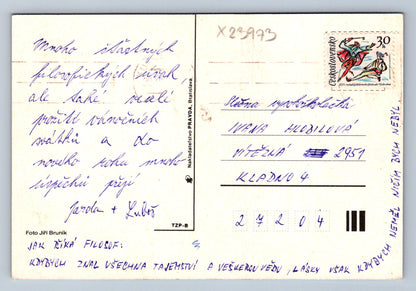 X23993
Mnoho šťastných
filosofických úvah,
ale také veselé
prožití vánočních
svátků a do
nového roku mnoho
úspěchů přejí
Jarda + Luboš
Foto Jiří Bruník
Nakladatelství PRAVDA, Bratislava
TZP-B
30
Československo
Slečna vysokoškolačka
IVANA
VÍTĚZNÁ 2951
KLADNO 4
2 7 2 0 4
JAK ŘÍKÁ FILOSOF:
KDYBYCH ZNAL VŠECHNA TAJEMSTVÍ A VEŠKEROU VĚDU, LÁSKY VŠAK KDYBYCH NEMĚL NIČÍM BYCH NEBYL.